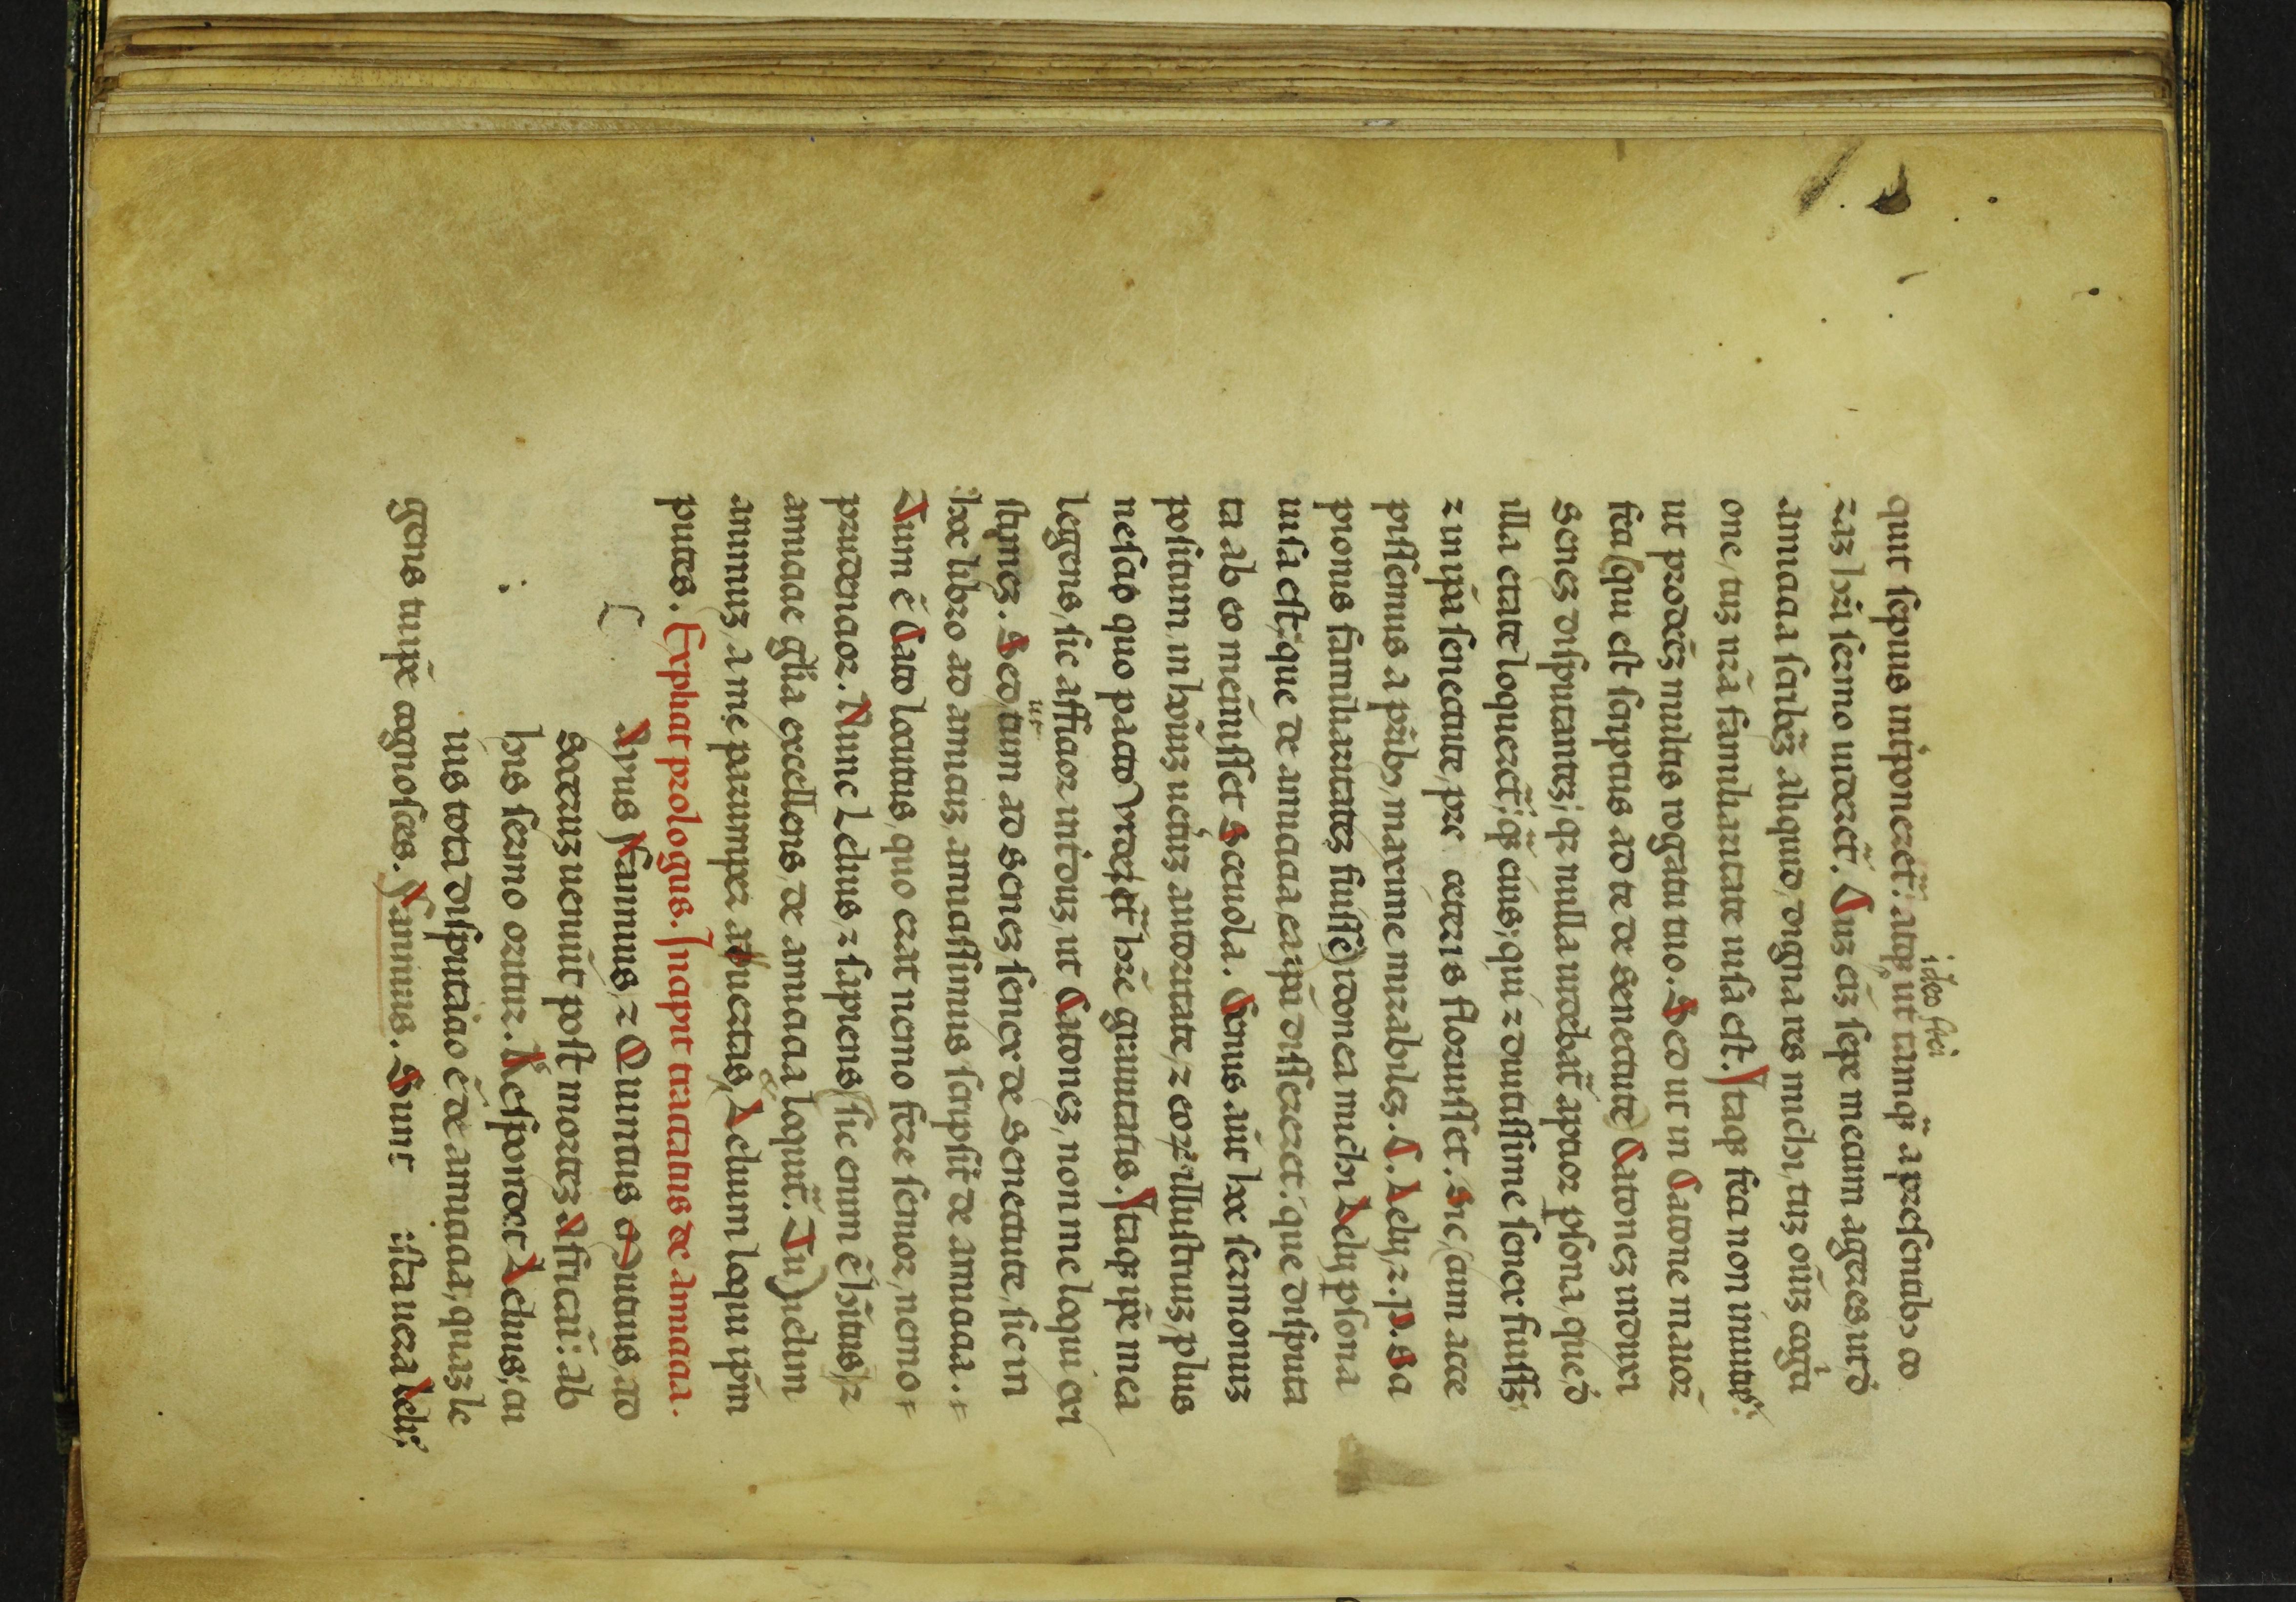 ideo feci
quit sepius int͛poneret᷑: atqꝫ ut tamqȝ a presentibꝰ co
raȝ hr̄i sermo uideret᷑. Cuȝ eī sepe mecum ageres, ut d̄
amicicia scribeȝ aliquid, digna res michi, tuȝ oīuȝ cogⁱta
one, tuȝ nr̄a familiaritate uisa est. Itaqȝ feci non inuitꝰ:
ut prodeȝ multis rogatu tuo. Sed ut in Catone maior̄
feci (qui est scriptus ad te de senectute) Catoneȝ induxi
Seneȝ disputanteȝ; qꝛ nulla uidebat᷑ aptior ꝑsona, que d̄
illa etate loqueret᷑; qȝ eius; qui ⁊ diutissime senex fuissȝ:
⁊ in ip̄a senectute, pre ceteris floruisset. Sic, cum acce
pissemus a pr̄ibꝰ, maxime mirabileȝ. C. Lely, ⁊. p. Sci
pionis familiaritateȝ fuisse) idonea michi Lely ꝑsona
uisa est, que de amicicia ea ip̄a dissereret: que disputa
ta ab eo mēinisset Sceuola. Genus aūt hoc sermonuȝ
positum in hoīuȝ uetȝ auctoritate, ⁊ eoꝝ illustriuȝ plus
nescio quo pacto uideret᷑ hr̄e grauitatis. Itaqȝ ip̄e mea
legens, sic afficior int͛duȝ, ut Catoneȝ, non me loqui exi
stimeȝ. Sed, ut tum ad Seneȝ senex de Senectute, sic in
hoc libro ad amicuȝ, amicissimus scripsi de amicicia. =
Tum ē Cato locutus, quo erat nemo fere senior, nemo =
prudencior. Nunc Lelius, ⁊ sapiens (sic enim ē hītus) ⁊
amicicie gl̄ia excellens, de amicicia loquit᷑. Tu) uelim
animuȝ, a me parumper auertas, & Lelium loqui ip̄m
putes. Explicit prologus. Incipit tractatus de amicicia.
Ayus Fannius, ⁊ Quintus Mutius, ad
Soceruȝ uenīut post morteȝ Affricai: ab
his sermo oritur. Respondet Lelius; cu
ius tota disputacio ē de amicicia, quaȝ le
gens tu ip̄e cognosces. Fannius. Sunt ista uera Leli: